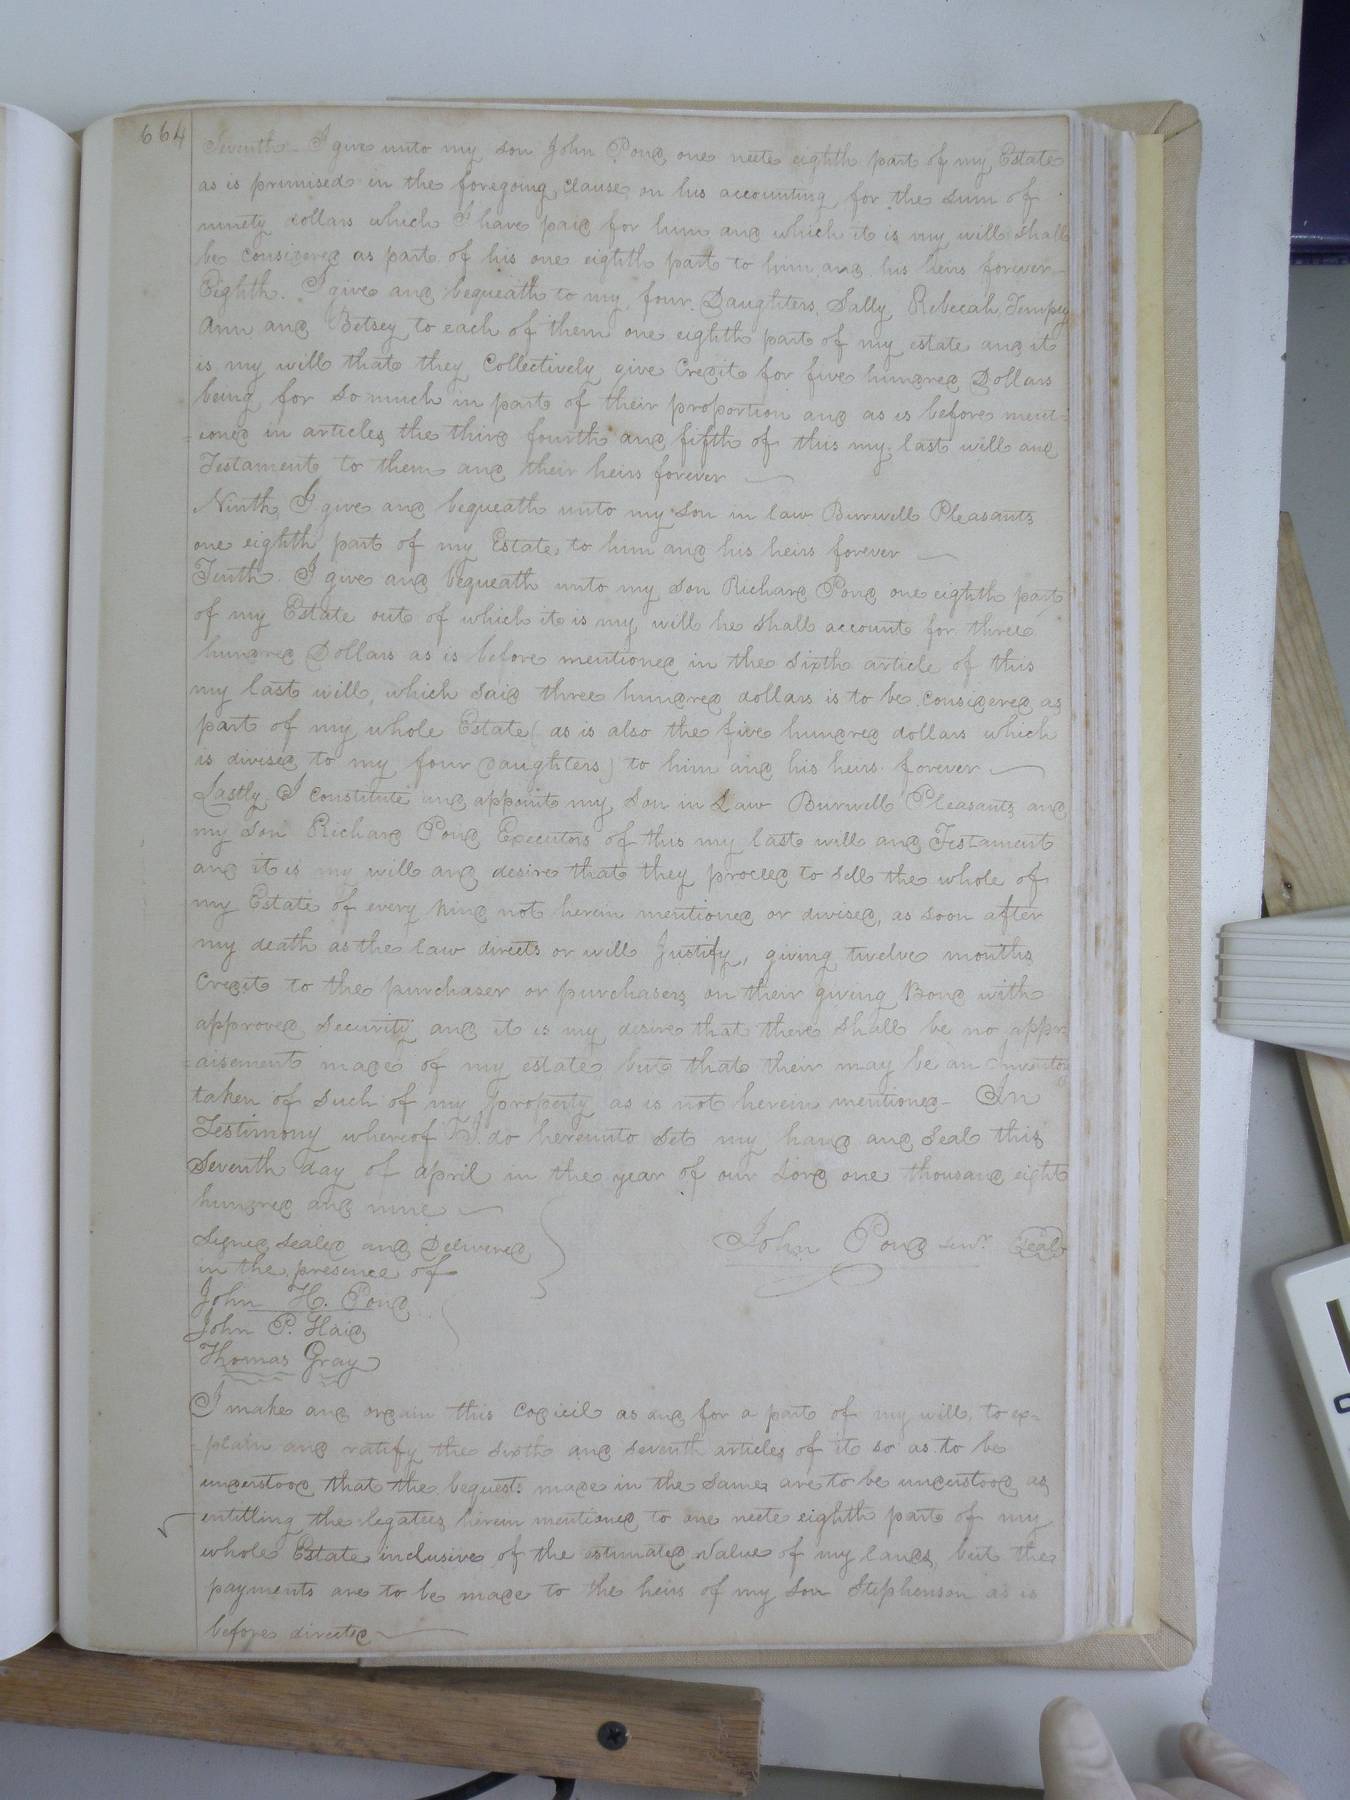 664
Seventh - I give unto my son John Pond one neete eighth part of my Estate
as is primised in the foregoing clause on his accounting for the sum of
ninety dollars which I have paid for him and which it is my will shall
be considered as part of his one eighth part to him and his heirs forever
Eighth. I give and bequeath to my four Daughters, Sally Rebecah, Tempey
Ann and Betsey to each of them one eighth part of my estate and it
is my will that they Collectively give Credit for five hundred Dollars
being for so much in part of their proportion and as is before ment=
=ioned in articles the third fourth and fifth of this my last will and
Testament to them and their heirs forever
Ninth, I give and bequeath unto my son in law Burwell Pleasants
one eighth part of my Estate, to him and his heirs forever
Tenth. I give and bequeath unto my son Richard Pond one eighth part
of my Estate out of which it is my will he shall account for three
hundred Dollars as is before mentioned in the sixth article of this
my last will, which said three hundred dollars is to be considered as
part of my whole Estate (as is also the five hundred dollars which
is divised to my four daughters) to him and his heirs forever
Lastly I constitute and appoint my son in Law Burwell Pleasants and
my son Richard Pond Executors of this my last will and Testament
and it is my will and desire that they proceed to sell the whole of
my Estate of every kind not herein mentioned or divised, as soon after
my death as the law directs or will Justify, giving twelve months
Credit to the purchaser or purchasers on their giving Bond with
approved security and it is my desire that there shall be no appr
=aisement made of my estate but that their may be an Inventory
taken of such of my property as is not herein mentioned - In
Testimony whereof I do hereunto set my hand and seal this
Seventh day of april in the year of our Lord one thousand eight
hundred and nine
Signed sealed and Delivered
John Pond senr. Seal
in the presence of
John H. Pond
John P. Haid
Thomas Gray
I make and ordain this Codicil as and for a part of my will, to ex-
-plain and ratify the sixth and seventh articles of it so as to be
understood that the bequest made in the same are to be understood as
entitling the legatees herein mentioned to one neete eighth part of my
whole Estate inclusive of the estimated value of my lands, but the
payments are to be made to the heirs of my son Stephenson as is
before directed